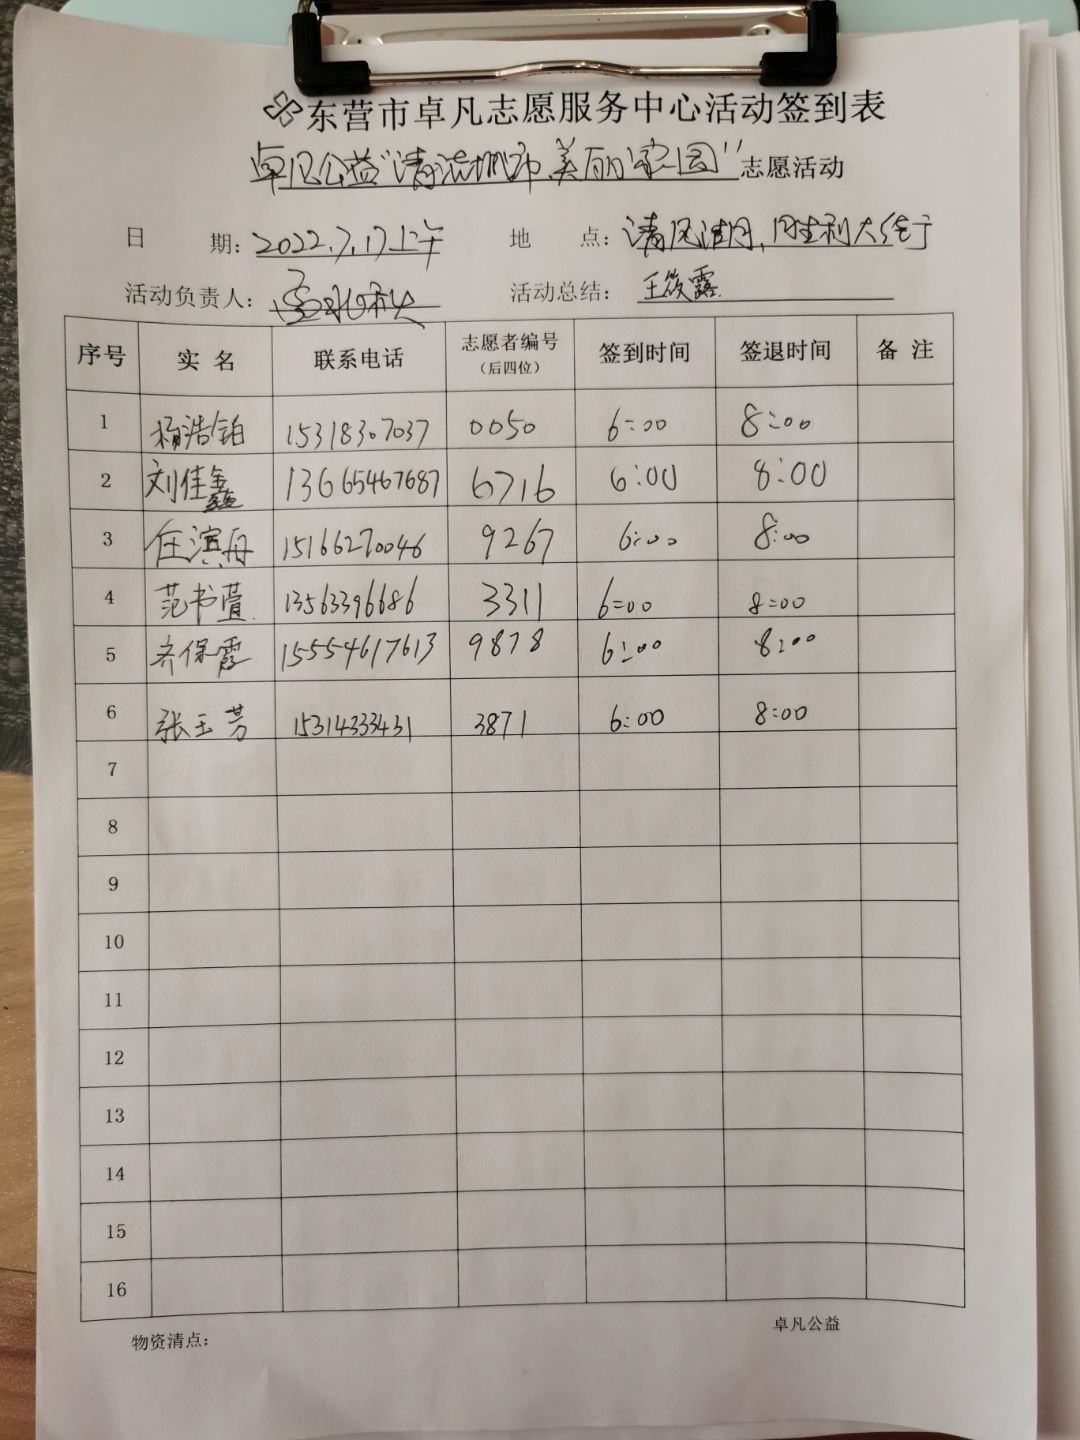 东营市卓凡志愿服务中心活动签到表
卓凡公益"清洁城市 美丽家园"志愿活动
日 期: 2022.7.17上午 地 点: 清风
活动负责人: 活动总结: 王筱露
序号 实 名 联系电话 志愿者编号(后四位) 签到时间 签退时间 备 注
1 杨浩铂 15318307037 0050 6:00 8:00
2 刘佳鑫 13665467687 6716 6:00 8:00
3 任滨舟 15166270046 9267 6:00 8:00
4 范书萱 13563396686 3311 6:00 8:00
5 齐保霞 15554617613 9878 6:00 8:00
6 张玉芳 15314333431 3871 6:00 8:00
7
8
9
10
11
12
13
14
15
16
物资清点: 卓凡公益